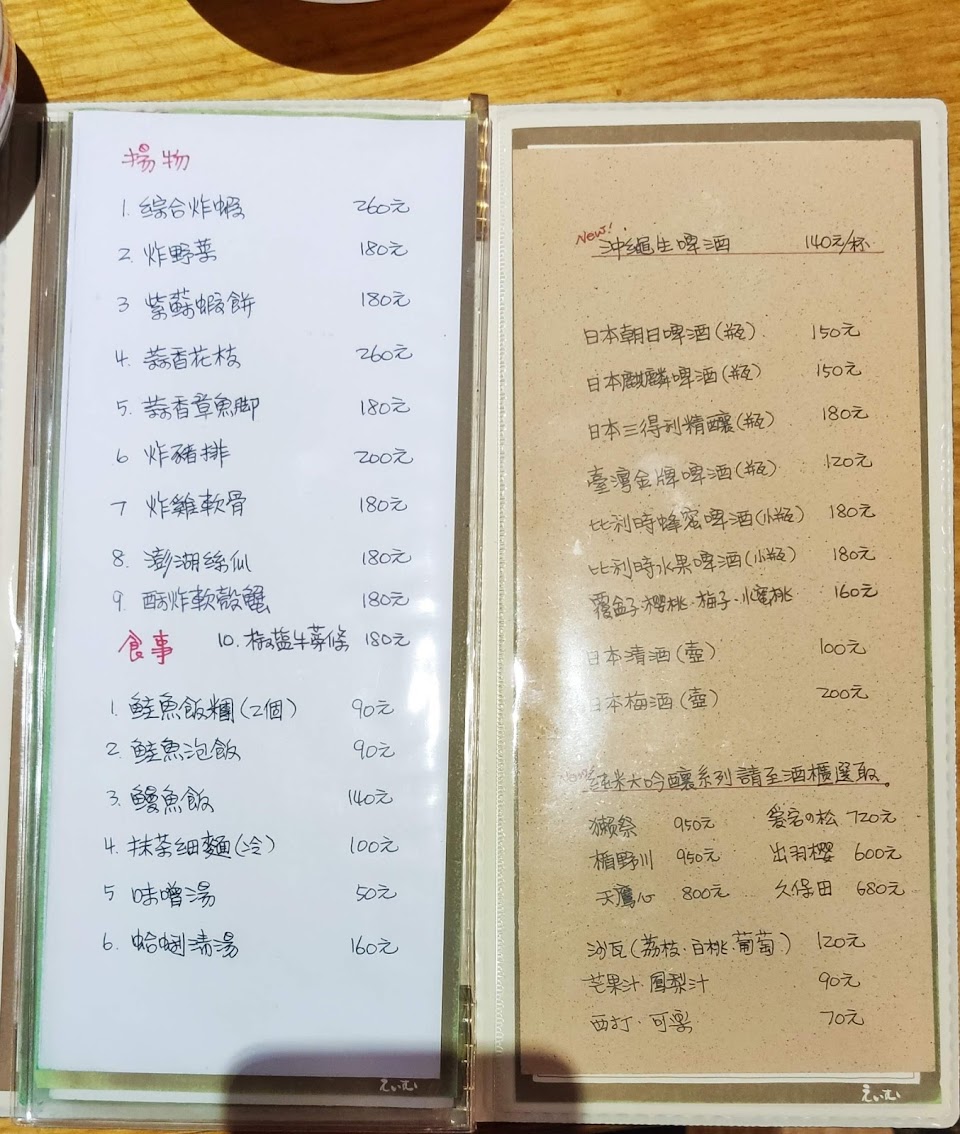 揚物
1. 綜合炸蝦 260元
2. 炸野菜 180元
3 紫蘇蝦餅 180元
4. 蒜香花枝 260元
5. 蒜香章魚脚 180元
6 炸豬排 200元
7 炸雞軟骨 180元
8. 澎湖絲仙 180元
9. 酥炸軟殼蟹 180元
食事 10. 椒盐牛蒡條 180元
1. 鮭魚飯糰(2個) 90元
2. 鮭魚泡飯 90元
3. 鰻魚飯 140元
4. 抹茶细麵(冷) 100元
5 味噌湯 50元
6. 蛤蜊清湯 160元
えいむ
New!
沖繩生啤酒 140元/杯
日本朝日啤酒(瓶) 150元
日本麒麟啤酒(瓶) 150元
日本三得利精釀(瓶) 180元
臺灣金牌啤酒(瓶) 120元
比利時蜂蜜啤酒(小瓶) 180元
比利時水果啤酒(小瓶) 180元
覆盆子·櫻桃·梅子·水蜜桃 160元
日本清酒(壺) 100元
日本梅酒(壺) 200元
New!
純米大吟釀系列請至酒櫃選取。
獺祭 950元 爱宕の松 720元
楯野川 950元 出羽櫻 600元
天鷹心 800元 久保田 680元
沙瓦(荔枝·白桃·葡萄) 120元
芒果汁·鳳梨汁 90元
西打·可樂 70元
えいむ